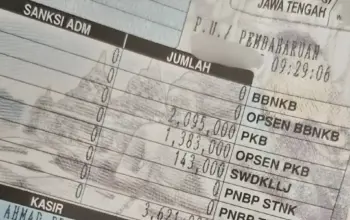 JAWA TENGAH
P.U./ PEMBAHARUAN
09:29:06
SANKSI ADM JUMLAH
0 0 BBNKB
0 0 OPSEN BBNKB
0 2,095,000 PKB
0 1,383,000 OPSEN PKB
0 143,000 SWDKLLJ
0 0 PNBP STNK
0 0 PNBP
KASIR
AHMAD